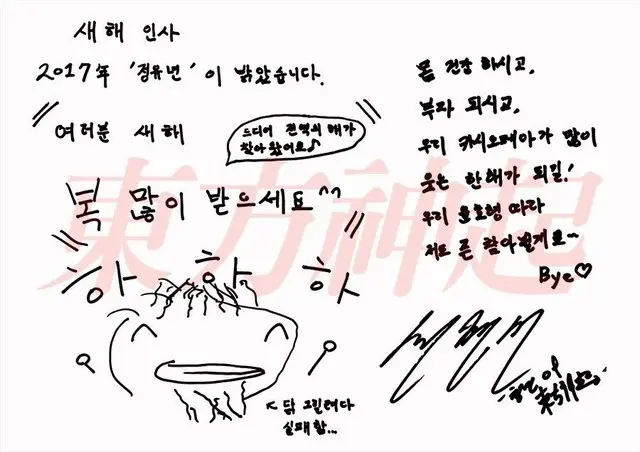 새해 인사
2017年 '정유년' 이 밝았습니다.
여러분 새해
드디어 전역의 해가
찾아 왔어요♪
복 많이 받으세요^^
하 하 하
↖ 닭 그리려다
실패함...
몸 건강 하시고,
부자 되시고,
우리 카시오페아가 많이
웃는 한해가 되길!
우리 윤호형 따라
저도 곧 찾아뵐게요~
Bye♡
東方神起